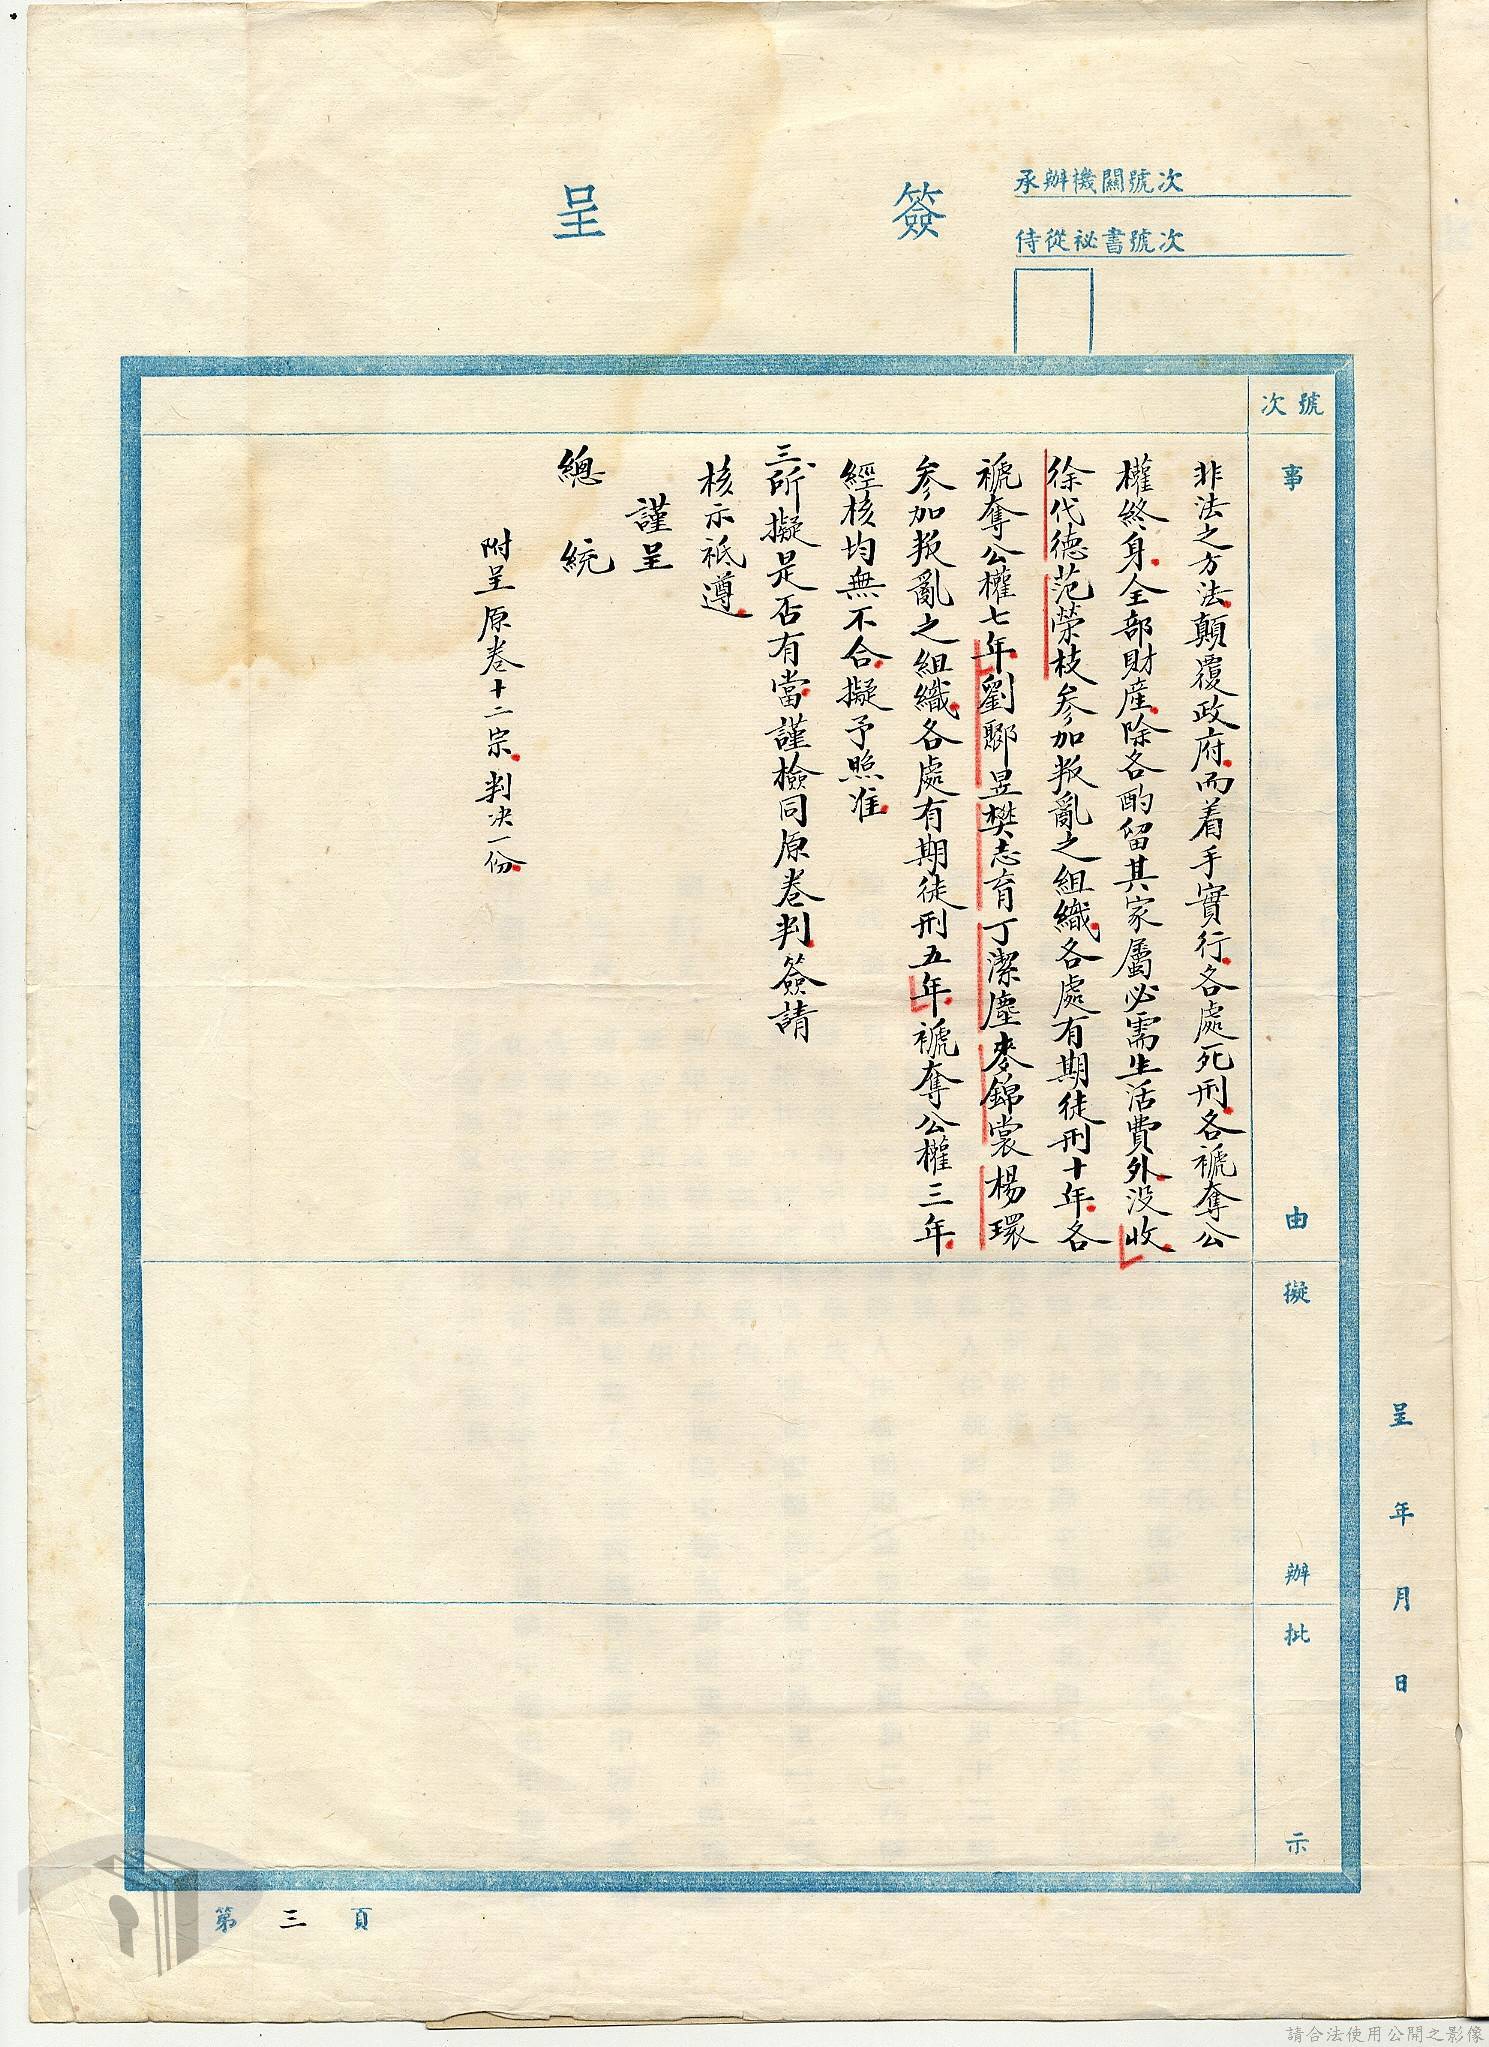 承辦機關號次
侍從祕書號次
簽呈
號次
事由
擬辦
批示
非法之方法顛覆政府而着手實行各處死刑各褫奪公
權終身全部財產除各酌留其家屬必需生活費外沒收
徐代德范榮枝參加叛亂之組織各處有期徒刑十年各
褫奪公權七年劉鄹昱樊志育丁潔塵麥錦裳楊環
參加叛亂之組織各處有期徒刑五年褫奪公權三年
經核均無不合擬予照准
三、所擬是否有當謹檢同原卷判簽請
核示祇遵
謹呈
總統
附呈原卷十二宗判決一份
呈年月日
第三頁
請合法使用公開之影像